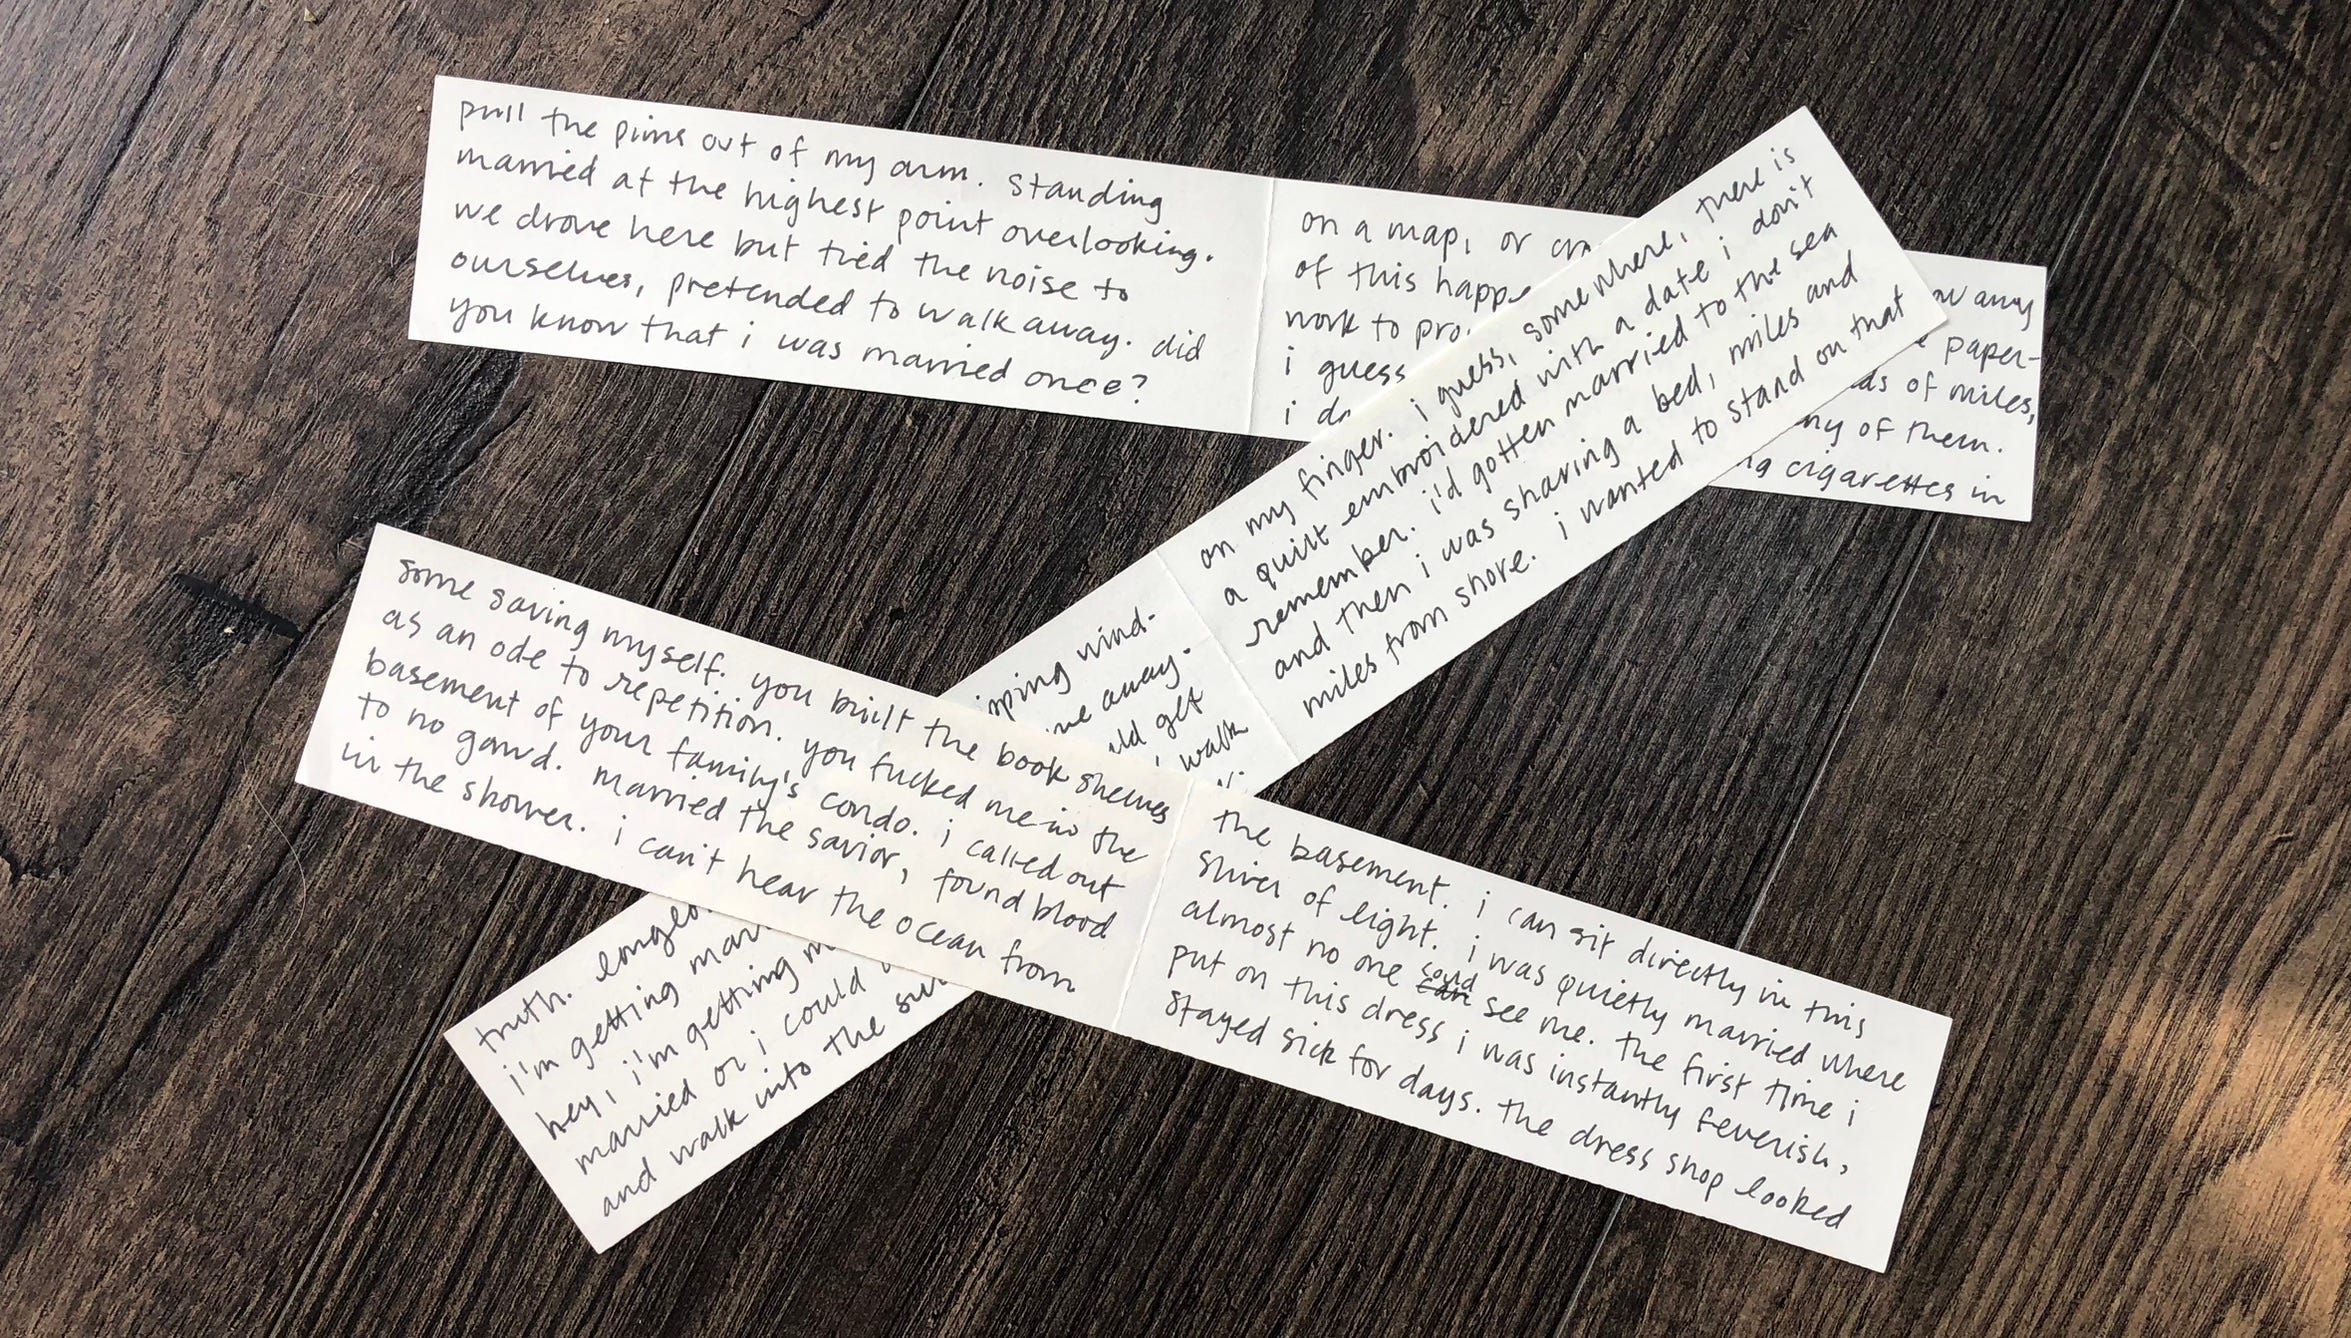 pull the pins out of my arm. standing
married at the highest point overlooking.
we drove here but tied the noise to
ourselves, pretended to walk away. did
you know that i was married once?
on a map, or
of this
work to
i guess
i
away
paper-
of miles,
of them.
cigarettes in
on my finger. i guess, somewhere, there is
a quilt embroidered with a date i don't
remember. i'd gotten married to the sea
and then i was sharing a bed, miles and
miles from shore. i wanted to stand on that
wind-
away.
get
walk
truth.
i'm getting
hey, i'm getting
married or i could
and walk into the
some saving myself. you built the book shelves
as an ode to repetition. you fucked me in the
basement of your family's condo. i called out
to no gawd. married the savior, found blood
in the shower. i can't hear the ocean from
the basement. i can sit directly in this
sliver of light. i was quietly married where
almost no one could see me. the first time i
put on this dress i was instantly feverish,
stayed sick for days. the dress shop looked